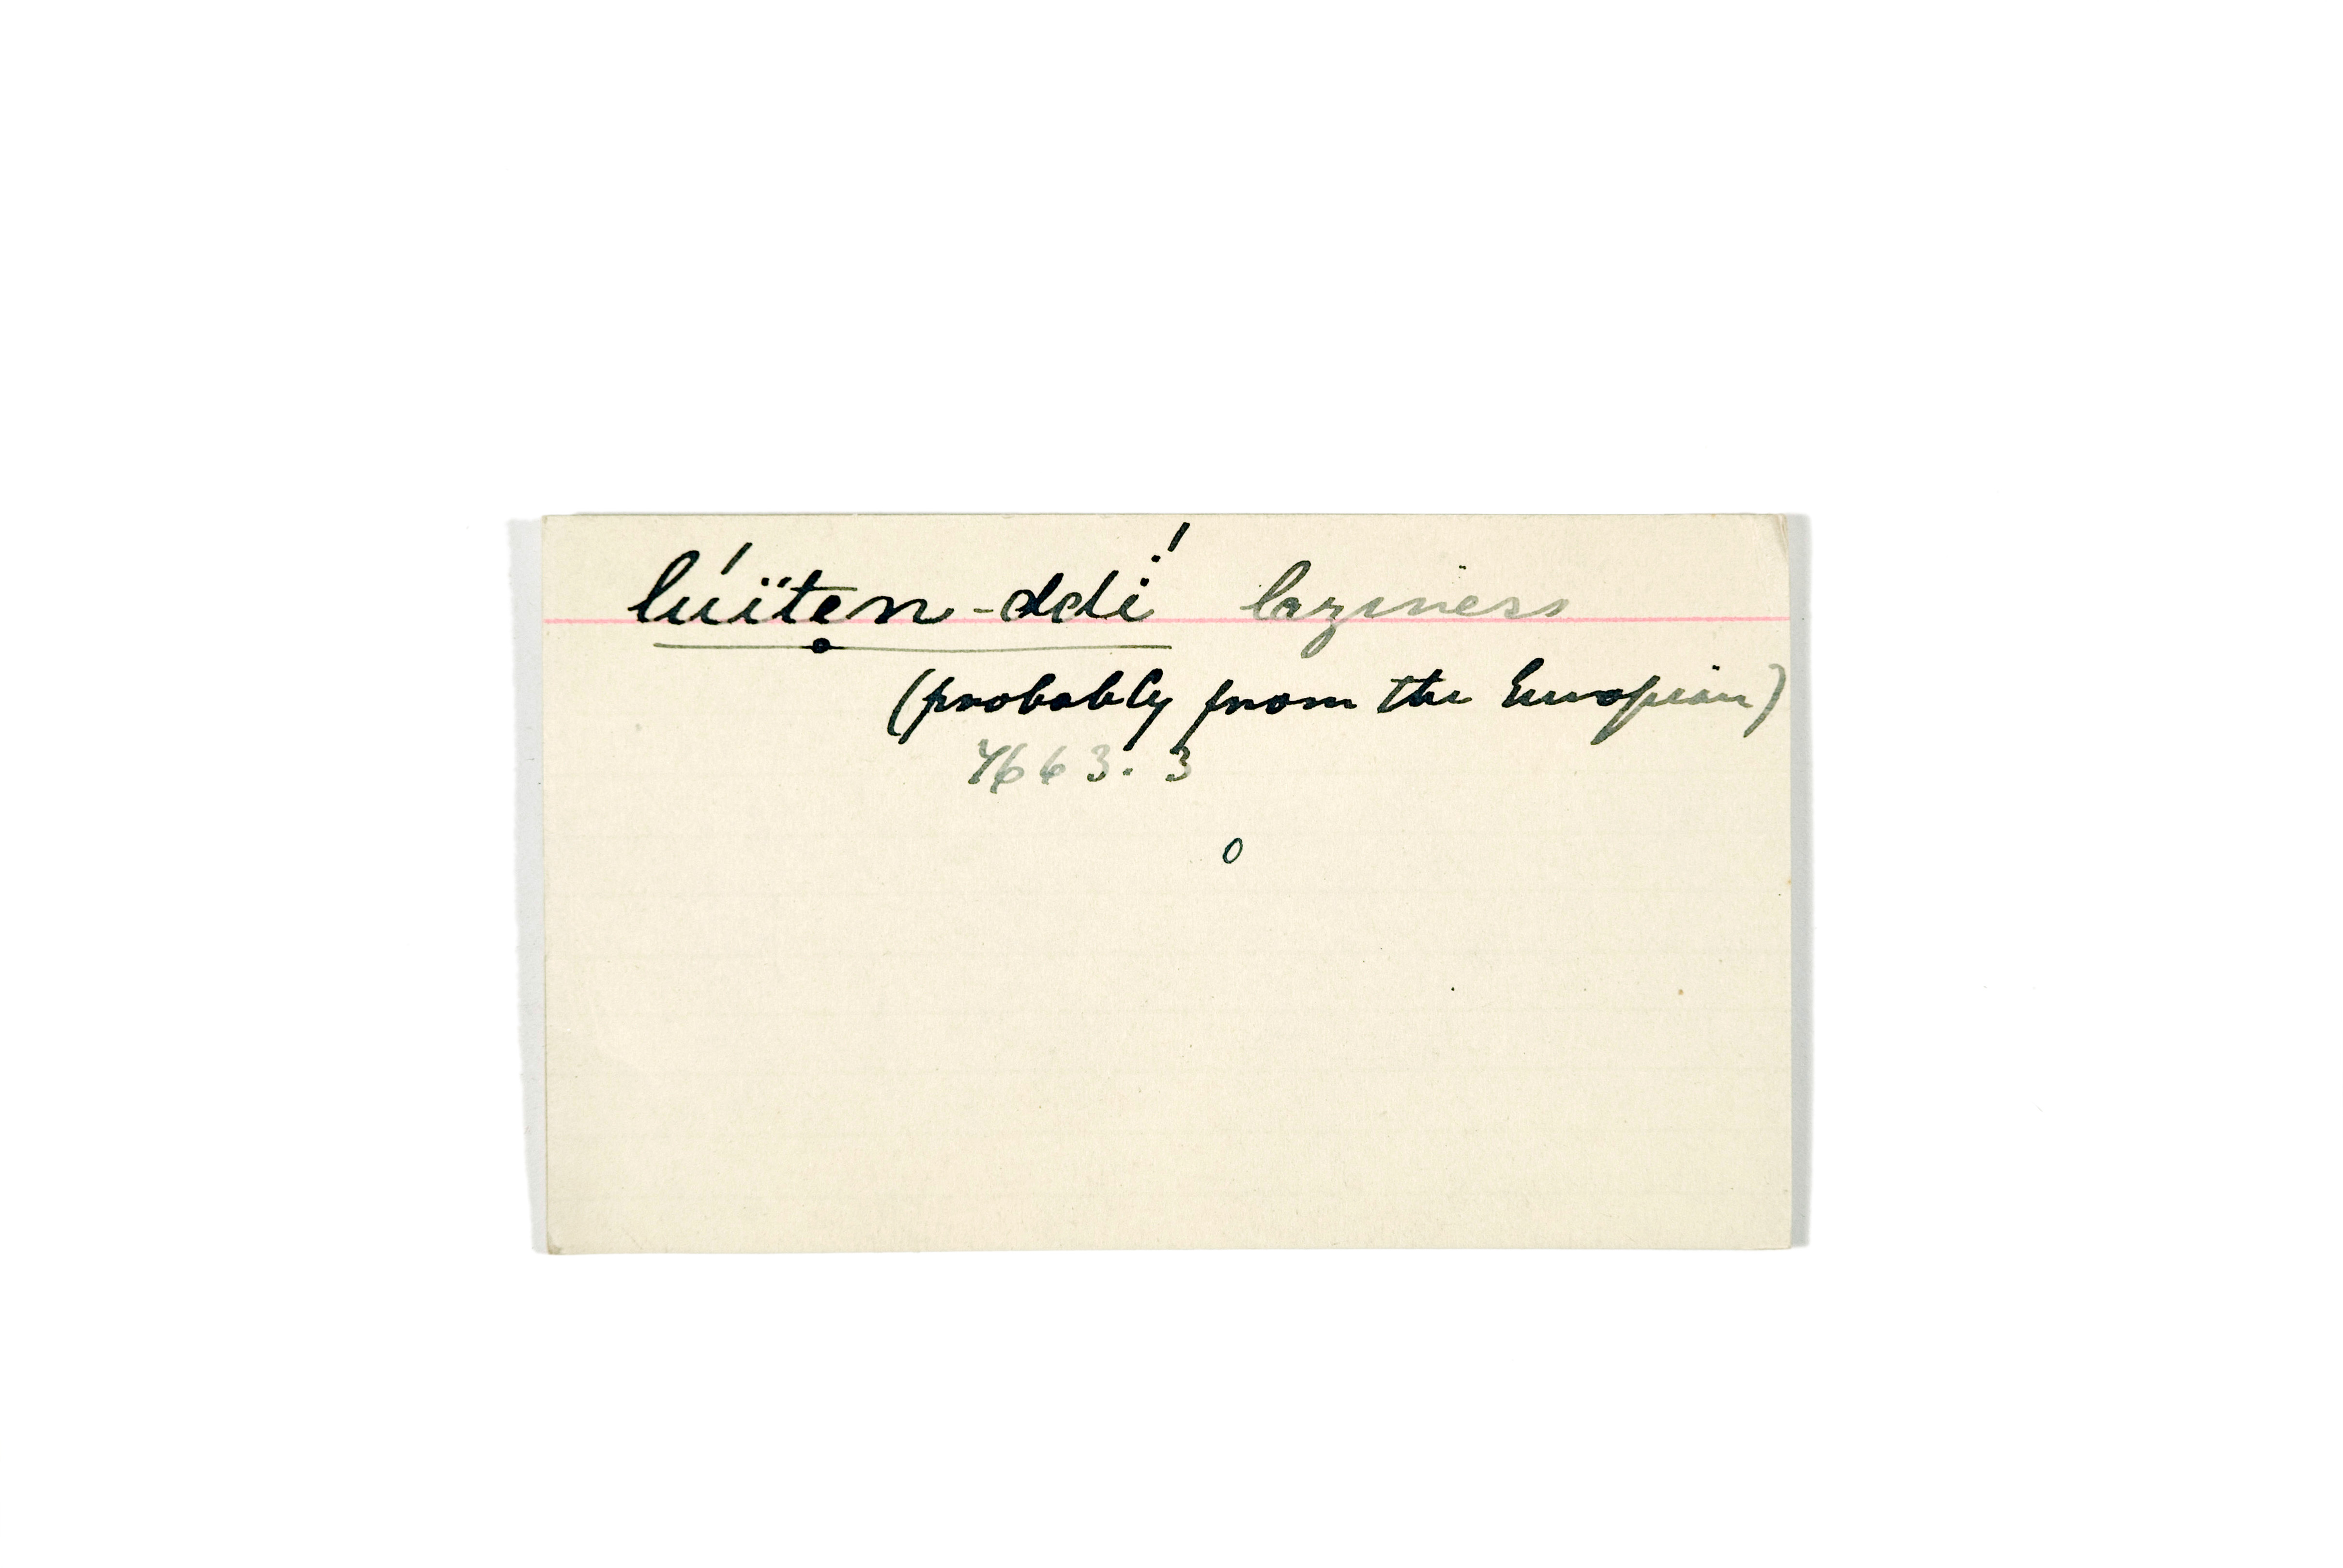 lúïtẹn-ddí laziness
(probably from the European)
7663.3
0